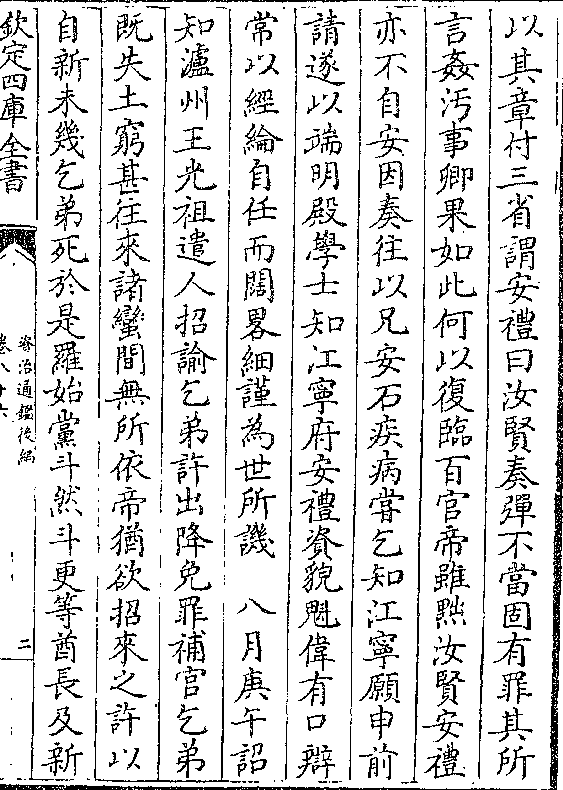 以其章付三省謂安禮曰汝賢奏彈不當固有罪其所
言姦汚事卿果如此何以復臨百官帝雖黜汝賢安禮
亦不自安因奏往以兄安石疾病嘗乞知江寧願申前
請遂以端明殿學士知江寧府安禮資貌魁偉有口辯
常以經綸自任而闊畧細謹為世所譏　八月庚午詔
知瀘州王光祖遣人招諭乞弟許出降免罪補官乞弟
既失土窮甚往來諸蠻間無所依帝猶欲招來之許以
自新未幾乞弟死於是羅始黨斗然斗更等酋長及新
欽定四庫全書
資治通鑑後編
卷八十六
二